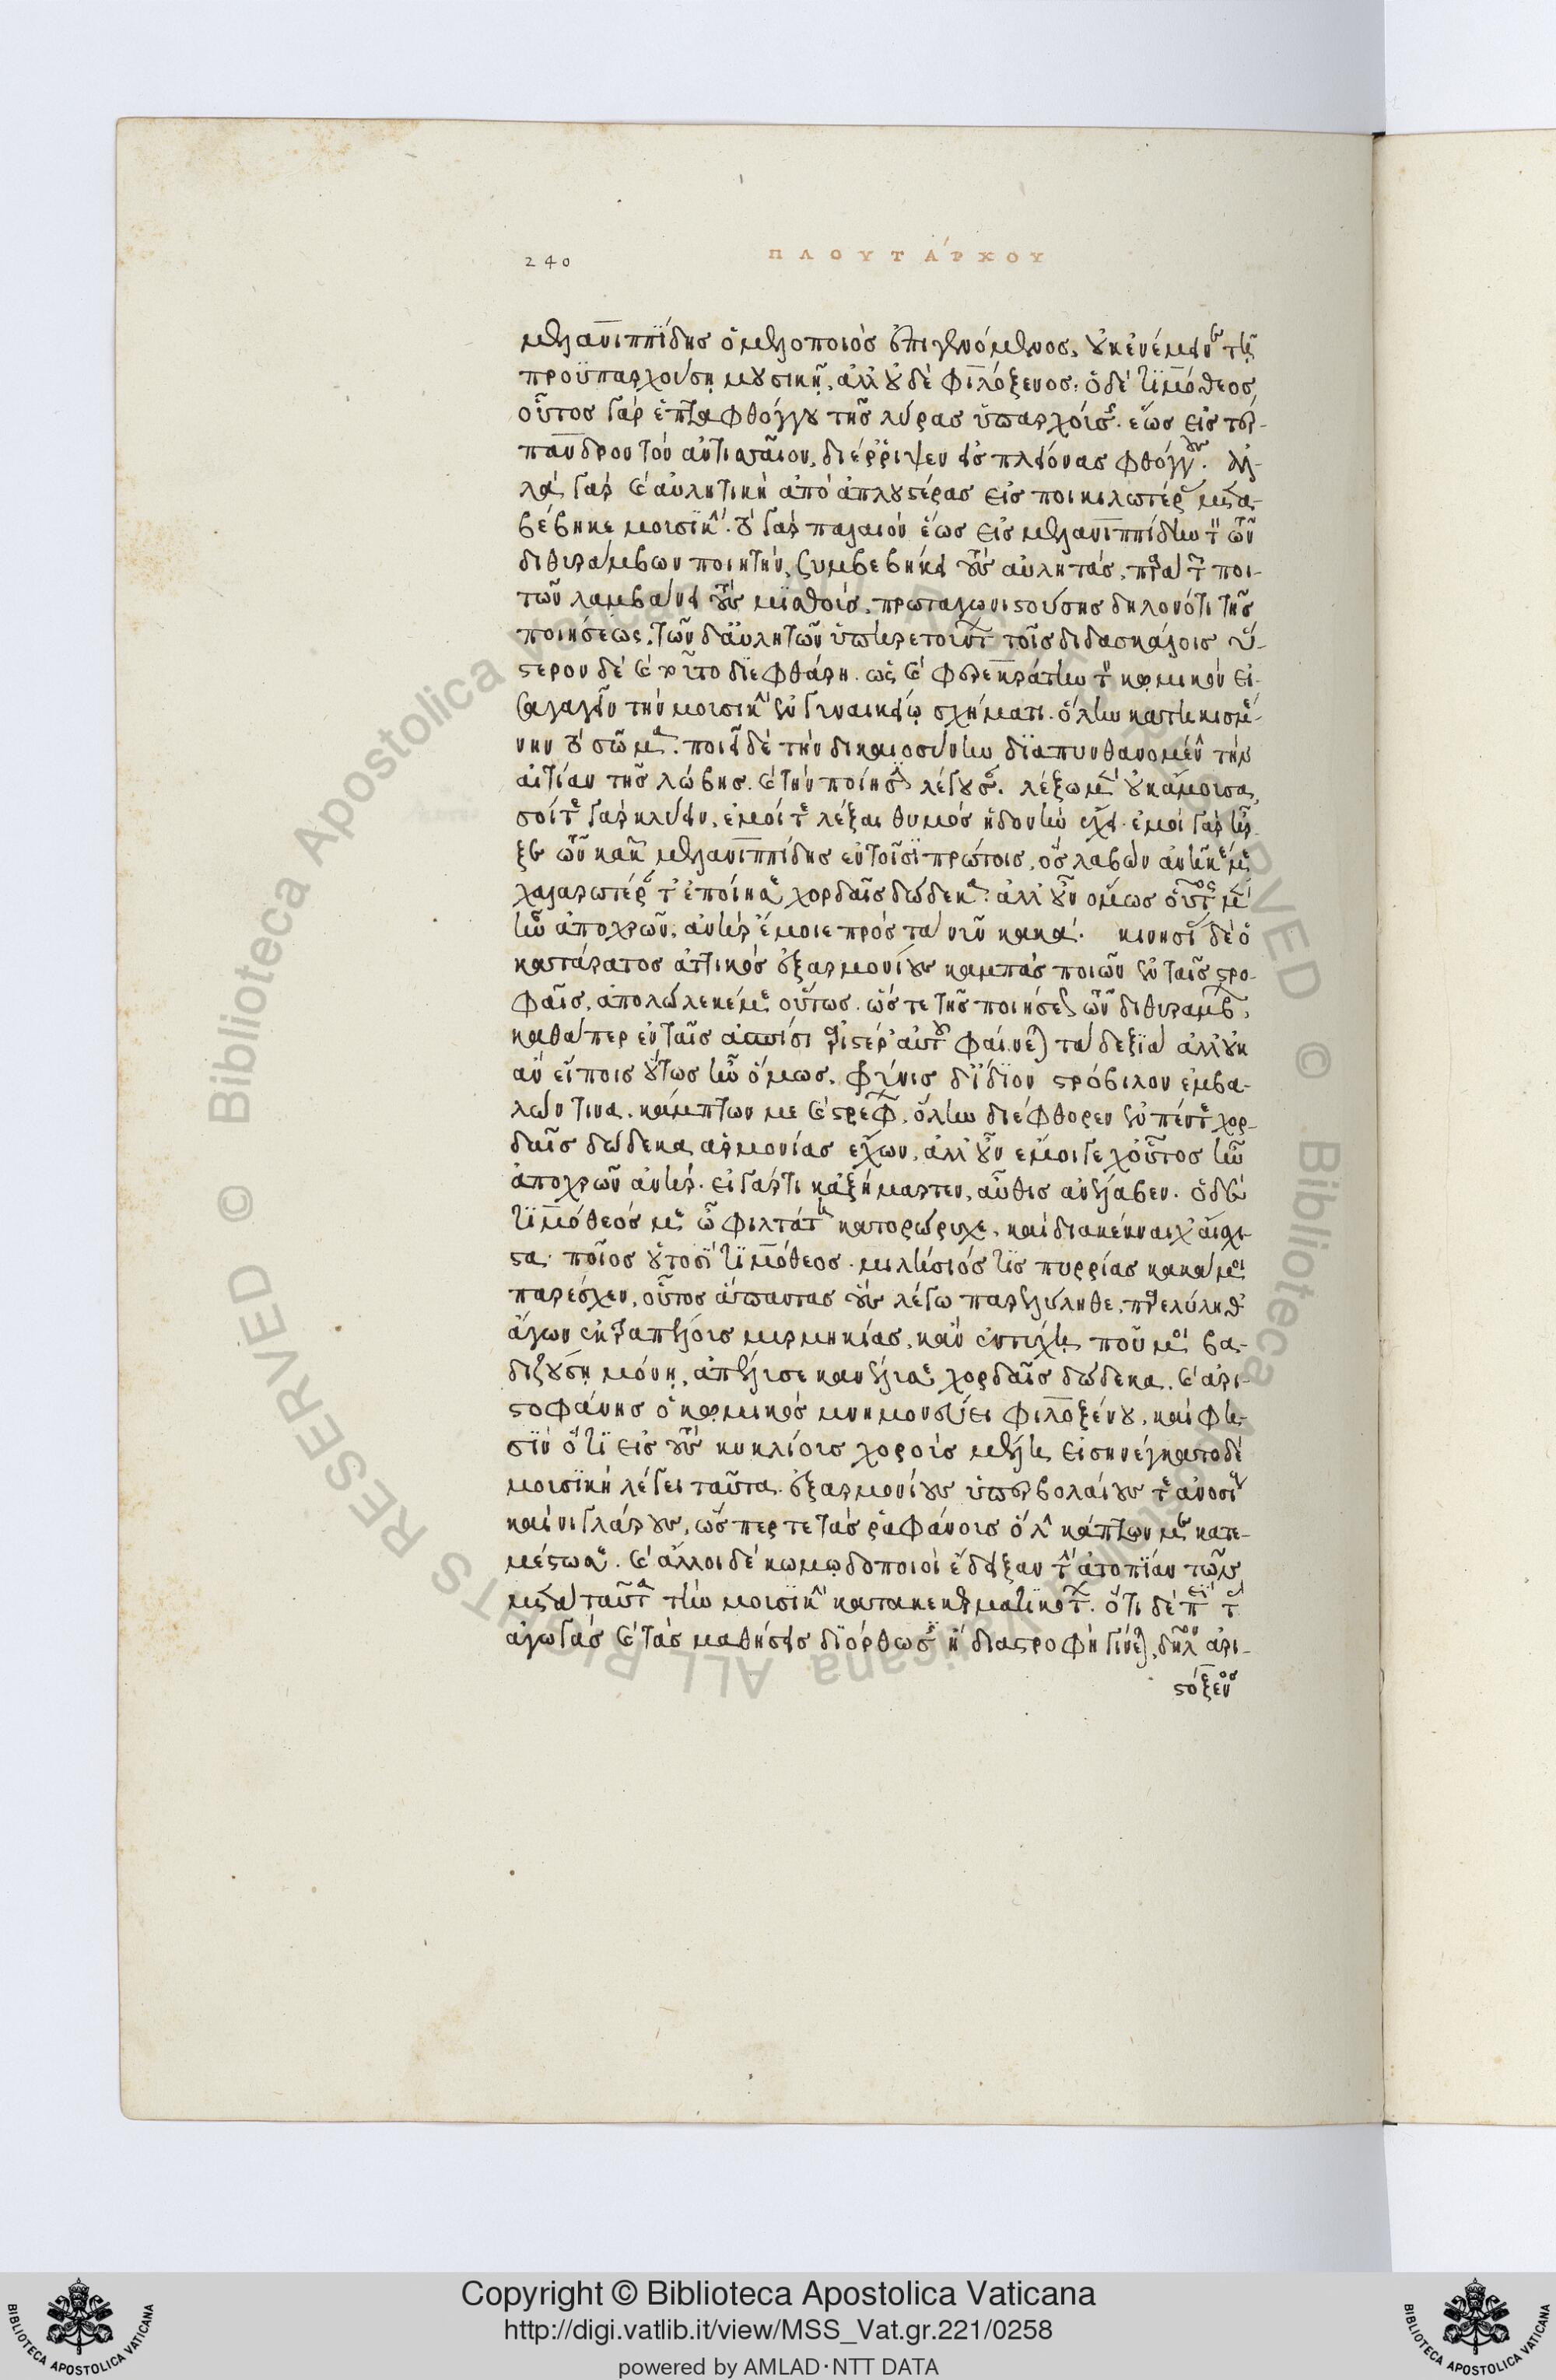 240
ΠΛΟΥΤΆΡΧΟΥ
μελανιππίδης ὁ μελοποιὸς ἐπιγενόμενος, οὐκ ἐνέμεινε τῇ
προϋπαρχούσῃ μουσικῇ, ἀλλ' οὐδὲ φιλόξενος. ὁ δὲ τιμόθεος,
οὗτος γὰρ ἑπταφθόγγου τῆς λύρας ὑπαρχούσης ἕως εἰς τερ-
πανδρον τὸν ἀντισσαῖον, διέρριψεν εἰς πλείονας φθόγγους. ἀλ-
λὰ γὰρ καὶ αὐλητικὴ ἀπὸ ἁπλουστέρας εἰς ποικιλωτέραν μετα-
βέβηκε μουσικήν. τὸ γὰρ παλαιὸν ἕως εἰς μελανιππίδην τὸν τῶν
διθυράμβων ποιητὴν, συμβεβήκει τοὺς αὐλητὰς, παρὰ τῶν ποι-
τῶν λαμβάνειν τοὺς μισθούς. πρωταγωνιστούσης δηλονότι τῆς
ποιήσεως. τῶν δ' αὐλητῶν ὑπηρετούντων τοῖς διδασκάλοις ὕ-
στερον δὲ καὶ τοῦτο διεφθάρη. ὡς καὶ φερεκράτην τὸν κωμικὸν εἰ-
σαγαγεῖν τὴν μουσικὴν ἐν γυναικείῳ σχήματι. ὅλην κατῃκισμέ-
νην τὸ σῶμα. ποιεῖ δὲ τὴν δικαιοσύνην διαπυνθανομένην τὴν
αἰτίαν τῆς λώβης. καὶ τὴν ποίησιν λέγουσαν. λέξω μὲν οὐκ ἄκουσα,
σοί τε γὰρ κλύειν, ἐμοί τε λέξαι θυμὸς ἡδονὴν ἔχει. ἐμοὶ γὰρ ἦρ-
ξε τῶν κακῶν μελανιππίδης ἐν τοῖσι πρώτοις, ὃς λαβὼν ἀνῆκέ με
χαλαρωτέραν τ' ἐποίησε χορδαῖς δώδεκα. ἀλλ' οὖν ὅμως οὗτος μὲν
ἦν ἀποχρῶν, ἀνὴρ ἔμοιγε πρὸς τὰ νῦν κακά. κινησίας δὲ ὁ
κατάρατος ἀττικὸς ἐξαρμονίους καμπὰς ποιῶν ἐν ταῖς στρο-
φαῖς, ἀπολώλεκέ με οὕτως. ὥστε τῆς ποιήσεως τῶν διθυράμβων,
καθάπερ ἐν ταῖς ἀσπίσι ἀριστέρ' αὐτοῦ φαίνεται τὰ δεξιὰ ἀλλ' οὐκ
ἂν εἴποις οὕτως ἦν ὅμως. φρύνις δ' ἴδιον στρόβιλον ἐμβα-
λών τινα. κάμπτων με καὶ στρέφων. ὅλην διέφθορεν ἐν πέντε χορ-
δαῖς δώδεκα ἁρμονίας ἔχων, ἀλλ' οὖν ἔμοιγε χοὗτος ἦν
ἀποχρῶν ἀνήρ. εἰ γάρ τι κἀξήμαρτεν, αὖθις ἀνέλαβεν. ὁ δὲ
τιμόθεός με ὦ φιλτάτη κατορώρυχε. καὶ διακέκναιχ' αἴσχι-
στα. ποῖος οὑτοσὶ τιμόθεος. μιλήσιός τις πυρρίας κακά μοι
παρέσχεν, οὗτος ἅπαντας οὓς λέγω παρελήλυθε,
ἄγων ἐκτραπέλους μυρμηκίας, κἂν ἐντύχῃ πού μοι βα-
διζούσῃ μόνῃ, ἀπέλυσε κἀνέλυσε χορδαῖς δώδεκα. καὶ ἀρι-
στοφάνης ὁ κωμικὸς μνημονεύει φιλοξένου, καὶ φη-
σὶν ὅτι εἰς τοὺς κυκλίους χοροὺς μέλη εἰσηνέγκατο δὲ
μουσικὴ λέγει ταῦτα. ἐξαρμονίους ὑπερβολαίους τε ἀνοσίους
καὶ νιγλάρους, ὥσπερ τε τὰς ῥαφάνους ὅλην κάπτων με κατε-
μέστωσε. καὶ ἄλλοι δὲ κωμῳδοποιοὶ ἔδειξαν τὴν ἀτοπίαν τῶν
μετὰ ταῦτα τὴν μουσικὴν κατακεκερματικότων. ὅτι δὲ παρὰ τὰς
ἀγωγὰς καὶ τὰς μαθήσεις διόρθωσις ἢ διαστροφὴ γίνεται, δῆλον ἀρι-
στόξενος